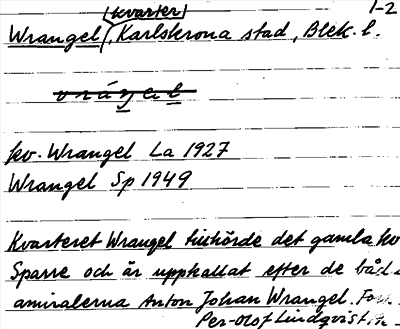 (kvarter)
1-2
Wrangel, Karlskrona stad, Blek. l.
vráŋel
kv. Wrangel La 1927
Wrangel Sp 1949
Kvarteret Wrangel tillhörde det gamla kv
Sparre och är uppkallat efter de båd
amiralerna Anton Johan Wrangel.
Per-Olof Lindqvist